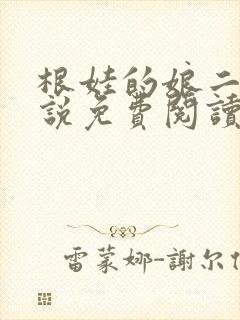 根娃的娘二
説免費閱讀
雷蒙娜-謝尔